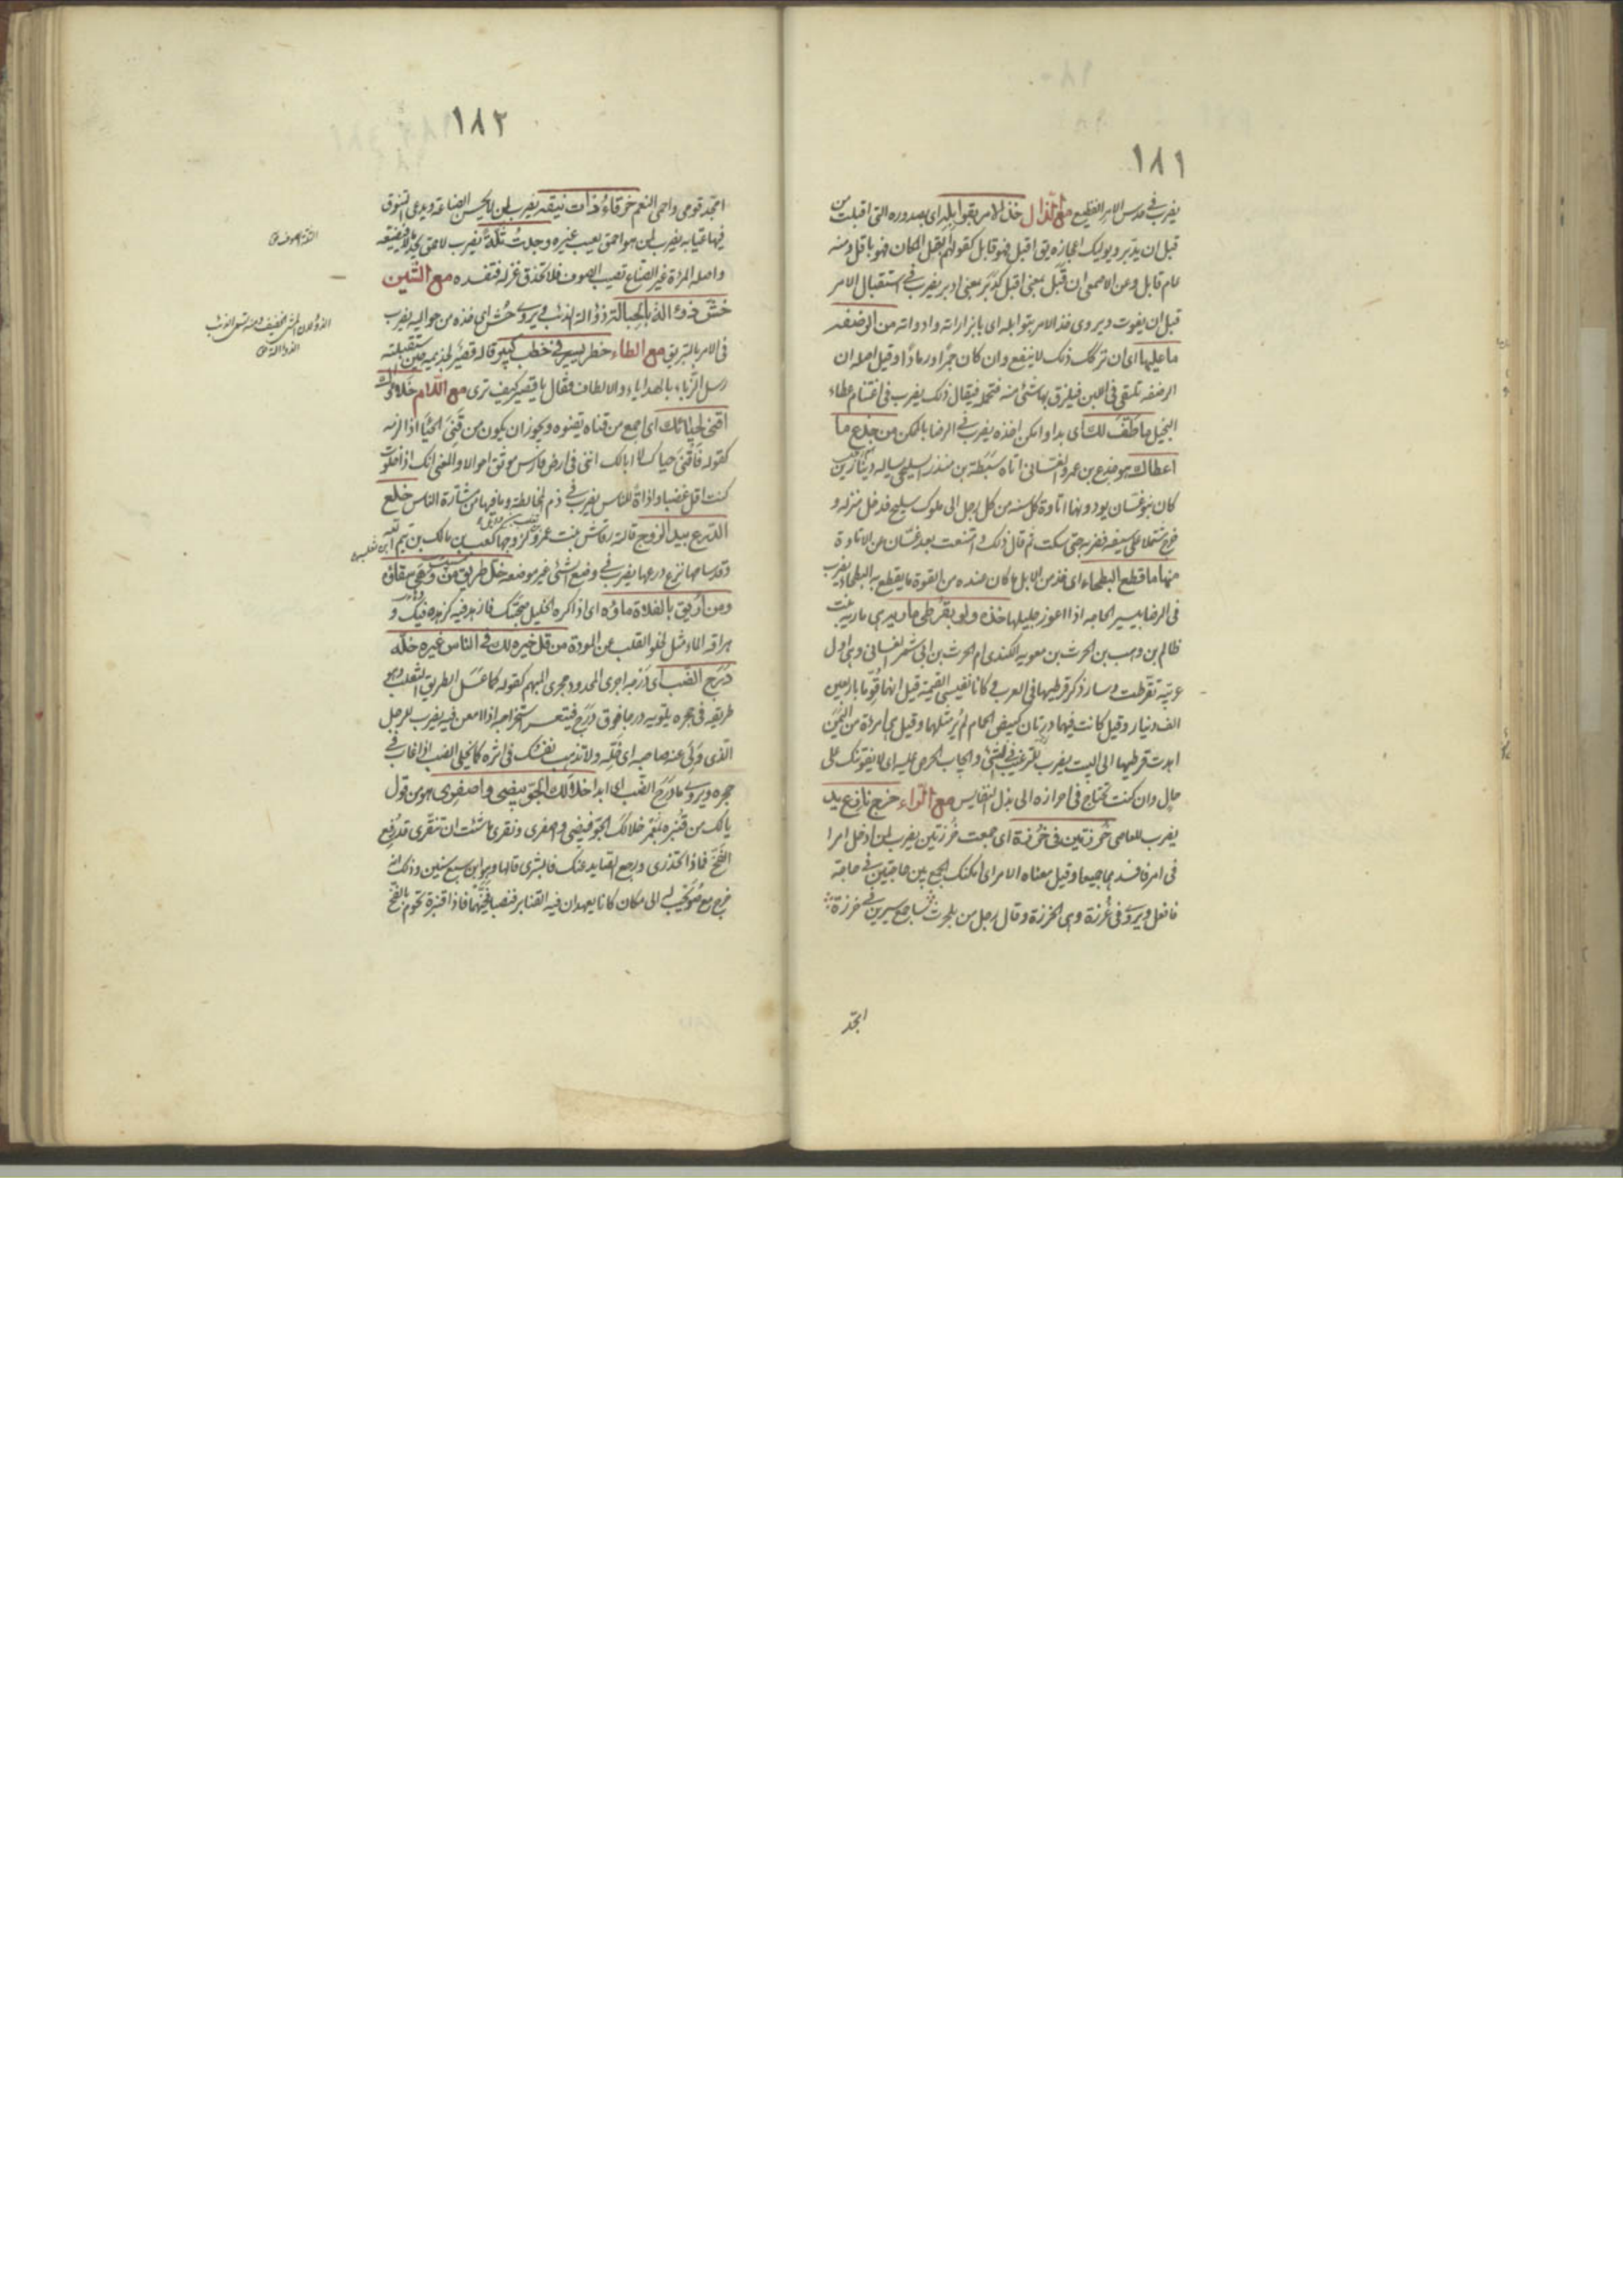 ١٨١
يضرب في حدس الامر الفظيع مع الذال خذ الامر بقوابله اى بصدوره التى اقبلت من
قبل ان يدبر ويوليك اعجازه يق اقبل فهو قابل كقولهم ابقل المكان فهو باقل ومنه
عام قابل وعن الاصمعى ان قبل بمعنى اقبل كدبر بمعنى ادبر يضرب في استقبال الامر
قبل ان يفوت ويروى خذ الامر بتوابله اى بابزاراته وادواته من الرضفه
ما عليها اى ان تركك ذلك لا ينفع وان كان جمرا ورمادا وقيل اصله ان
الرضفه تلقى في اللبن فيلزق بها شئ منه فتحمله فيقال ذلك يضرب في اغتنام عطاء
البخيل ما طف لك اى بدا وامكن اخذه يضرب في الرضا بالممكن من جذع ما
اعطاك هو جذع بن عمرو الغسانى اتاه سبطة بن منذر السليحى يساله دينارين
كان بنو غسان يودونهما اتاوة كل سنه من كل رجل الى ملوك سليح فدخل منزله و
خرج مشتملا على سيفه فضربه حتى سكت ثم قال ذلك و امتنعت بعد غسان عن الاتاوة
منها ما قطع البطحاء اى خذ من الابل ما كان عنده من القوة ما يقطع به البطحاء يضرب
في الرضا بيسير الحاجه اذا اعوز جليلها خذه ولو بقرطى ماريه هى ماريه بنت
ظالم بن وهب بن الحرث بن معويه الكندى ام الحرث بن ابى شمر الغسانى وهى اول
عربيه تقرطت وسار ذكر قرطيها في العرب و كانا نفيسى القيمة قيل انهما قوما باربعين
الف دينار وقيل كانت فيهما درتان كبيض الحمام لم ير مثلهما وقيل هى امرءة من اليمن
اهدت قرطيها الى البيت يضرب للترغيب في الشئ وايجاب الحرص عليه اى لا يفوتنك على
حال وان كنت تحتاج في احرازه الى بذل النفايس مع الراء خرج نازع يد
يضرب للعاصى خرزتين في خرزة اى جمعت خرزتين يضرب لمن ادخل امرا
في امر فافسدهما جميعا وقيل معناه الامر اى امكنك الجمع بين حاجتين في حاجة
فافعل ويروى في غرزة وهى الخرزة وقال رجل من بلحرث ساجمع سيرين في خرزة
امجد
١٨٢
امجد قومى واحمى النعم خرقاء ذات نيقه يضرب لمن لا يحسن الصناعة ويدعى التنوق
فيها عيابه يضرب لمن هو احمق يعيب غيره وجدت ثلة يضرب لاحمق يجد مالا فيضيعه
واصله المرءة غير الصناع تصيب الصوف فلا تحذق غزله فتفسده مع الشين
خش ذؤالة بالحبالة ذؤالة الذئب ويروى حش اى خذه من حواليه يضرب
في الامر بالتبريق مع الطاء خطر يسير في خطب كبير قاله قصير لجذيمه حين استقبلته
رسل الزباء بالهدايا والالطاف فقال يا قصير كيف ترى مع اللام خلاؤك
اقنى لحيائك اى اجمع من قناه يقنوه ويجوز ان يكون من قنى الحيا اذا لزمه
كقوله فاقنى حياك لا ابالك اننى في ارض فارس موثق احوالا والمعنى انك اذا خلوت
كنت اقل غضبا واذاة للناس يضرب في ذم المخالطة وما فيها من مشارة الناس خلع
الدرع بيد الزوج قالته رقاش بنت عمرو لزوجها كعب بن مالك بن تيم الله
ابن ثعلبه
وقد سامها نزع درعها يضرب في وضع الشئ غير موضعه خل طريق من وهى سقاؤه
ومن اريق بالفلاة ماؤه اى اذا كره الخليل صحبتك فازهد فيه كزهده فيك و
هراقة الماء مثل لخلو القلب عن المودة من قل خيره لك في الناس غيره خله
درج الضب اى درجه اجرى المحدود مجرى المبهم كقوله كما عسل الطريق الثعلب وهو
طريقه في جحره يلتويه درجا فوق درج فيتعسر استخراجه اذا امعن فيه يضرب للرجل
الذى ولى عنه صاحبه اى خله ولا تذهب نفسك في اثره كما يخلى الضب اذا غاب في
جحره ويروى ما درج الضب اى ابدا خلا لك الجو فبيضى واصفرى هو من قول
يا لك من قنبره بمعمر خلا لك الجو فبيضى و اصفرى ونقرى ما شئت ان تنقرى قد رفع
الفخ فماذا تحذرى ورجع الصايد عنك فابشرى قالها وهو ابن سبع سنين وذلك انه
خرج مع صويحب له الى مكان كانا يعهدان فيه القنابر فنصبا فخهما فاذا قنبرة تحوم بالفخ
الثلة الصوف
الذؤلان المشى الخفيف ومنه سمى الذئب
الذؤالة